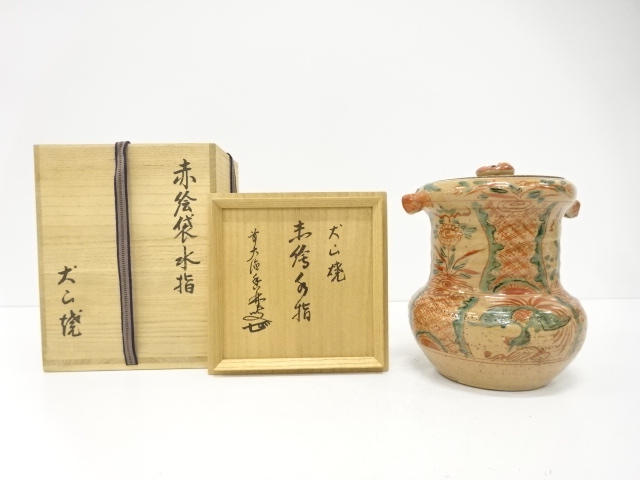 赤絵袋水指
犬山焼
犬山焼
赤絵水指